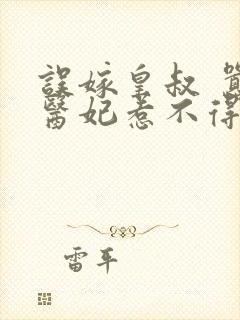 誤嫁皇叔
醫妃惹不得
雷平